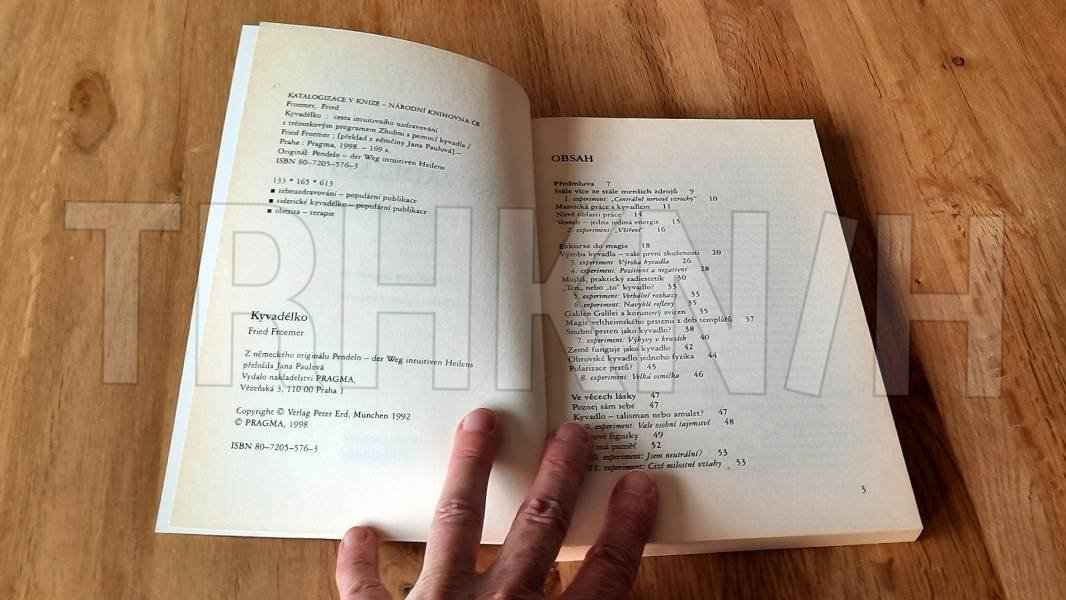 KATALOGIZACE V KNIZE – NÁRODNÍ KNIHOVNA ČR
Froemer, Fried
Kyvadélko : cesta intuitivního uzdravování
s tréninkovým programem Zhubni s pomocí kyvadla /
Fried Froemer ; [překlad z němčiny Jana Paulová].–
Praha : Pragma, 1998. – 169 s.
Originál: Pendeln – der Weg intuitiven Heilens
ISBN 80–7205–576–3
133 * 165 * 613
■ sebeuzdravování – populární publikace
■ siderické kyvadélko – populární publikace
■ obezita – terapie
Kyvadélko
Fried Froemer
Z německého originálu Pendeln – der Weg intuitiven Heilens
přeložila Jana Paulová
Vydalo nakladatelství PRAGMA,
Vězeňská 3, 110 00 Praha 1
Copyright © Verlag Peter Erd, München 1992
© PRAGMA, 1998
ISBN 80–7205–576–3
OBSAH
Předmluva 7
Stále více ze stále menších zdrojů 9
1. experiment: „Centrální nervové vzruchy“ 10
Mantická práce s kyvadlem 11
Nové oblasti práce 14
Vesmír – jedna jediná energie 15
2. experiment: „Věštění“ 16
Exkurze do magie 18
Výroba kyvadla – vaše první zkušenosti 20
3. experiment: Výroba kyvadla 26
4. experiment: Pozitivní a negativní 28
Mojžíš, praktický radiestetik 30
„Ten„ nebo „to“ kyvadlo? 33
5. experiment: Verbální rozkazy 33
6. experiment: Navyklé reflexy 35
Galileo Galilei a korunový svícen 35
Magie veltheimského prstenu z dob templářů 37
Snubní prsten jako kyvadlo? 38
7. experiment: Výkyvy v kruzích 40
Země funguje jako kyvadlo 42
Obrovské kyvadlo jednoho fyzika 44
Polarizace prstů? 45
8. experiment: Velká osmička 46
Ve věcech lásky 47
Poznej sám sebe 47
Kyvadlo – talisman nebo amulet? 47
9. experiment: Vaše osobní tajemství 48
figurky 49
má paměť 52
10. experiment: Jsem neutrální? 53
11. experiment: Cizí milostné vztahy 53
3
TRHKNIH